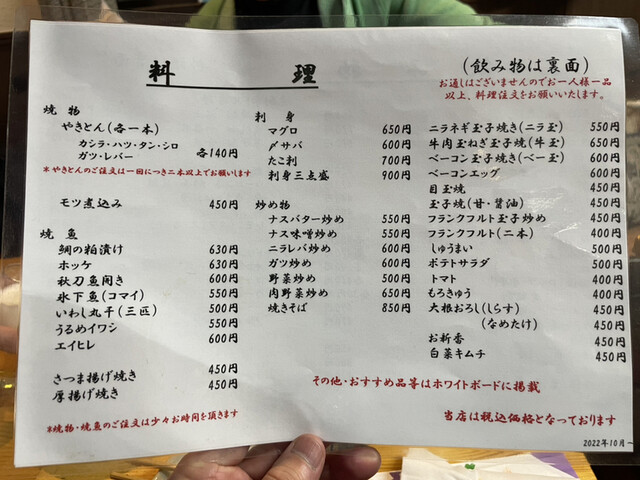 料理
(飲み物は裏面)
お通しはございませんのでお一人様一品
以上、料理注文をお願いいたします。
焼物
やきとん(各一本)
カシラ・ハツ・タン・シロ
ガツ・レバー 各140円
*やきとんのご注文は一回につき二本以上でお願いします
モツ煮込み 450円
焼魚
鯛の粕漬け 630円
ホッケ 630円
秋刀魚開き 600円
氷下魚(コマイ) 550円
いわし丸干(三匹) 500円
うるめイワシ 550円
エイヒレ 600円
さつま揚げ焼き 450円
厚揚げ焼き 450円
*焼物・焼魚のご注文は少々お時間を頂きます
刺身
マグロ 650円
〆サバ 600円
たこ刺 700円
刺身三点盛 900円
炒め物
ナスバター炒め 550円
ナス味噌炒め 550円
ニラレバ炒め 600円
ガツ炒め 600円
野菜炒め 500円
肉野菜炒め 650円
焼きそば 850円
ニラネギ玉子焼き(ニラ玉) 550円
牛肉玉ねぎ玉子焼(牛玉) 650円
ベーコン玉子焼き(ベー玉) 600円
ベーコンエッグ 600円
目玉焼 450円
玉子焼(甘・醤油) 450円
フランクフルト玉子炒め 450円
フランクフルト(二本) 400円
しゅうまい 500円
ポテトサラダ 500円
トマト 400円
もろきゅう 400円
大根おろし(しらす) 450円
(なめたけ) 450円
お新香 450円
白菜キムチ 450円
その他・おすすめ品等はホワイトボードに掲載
当店は税込価格となっております
2022年10月~